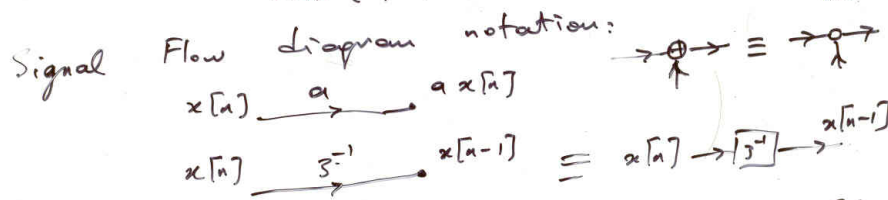 Signal Flow diagram notation:
≡
x[n] a a x[n]
x[n] z⁻¹ x[n-1] ≡ x[n] z⁻¹ x[n-1]